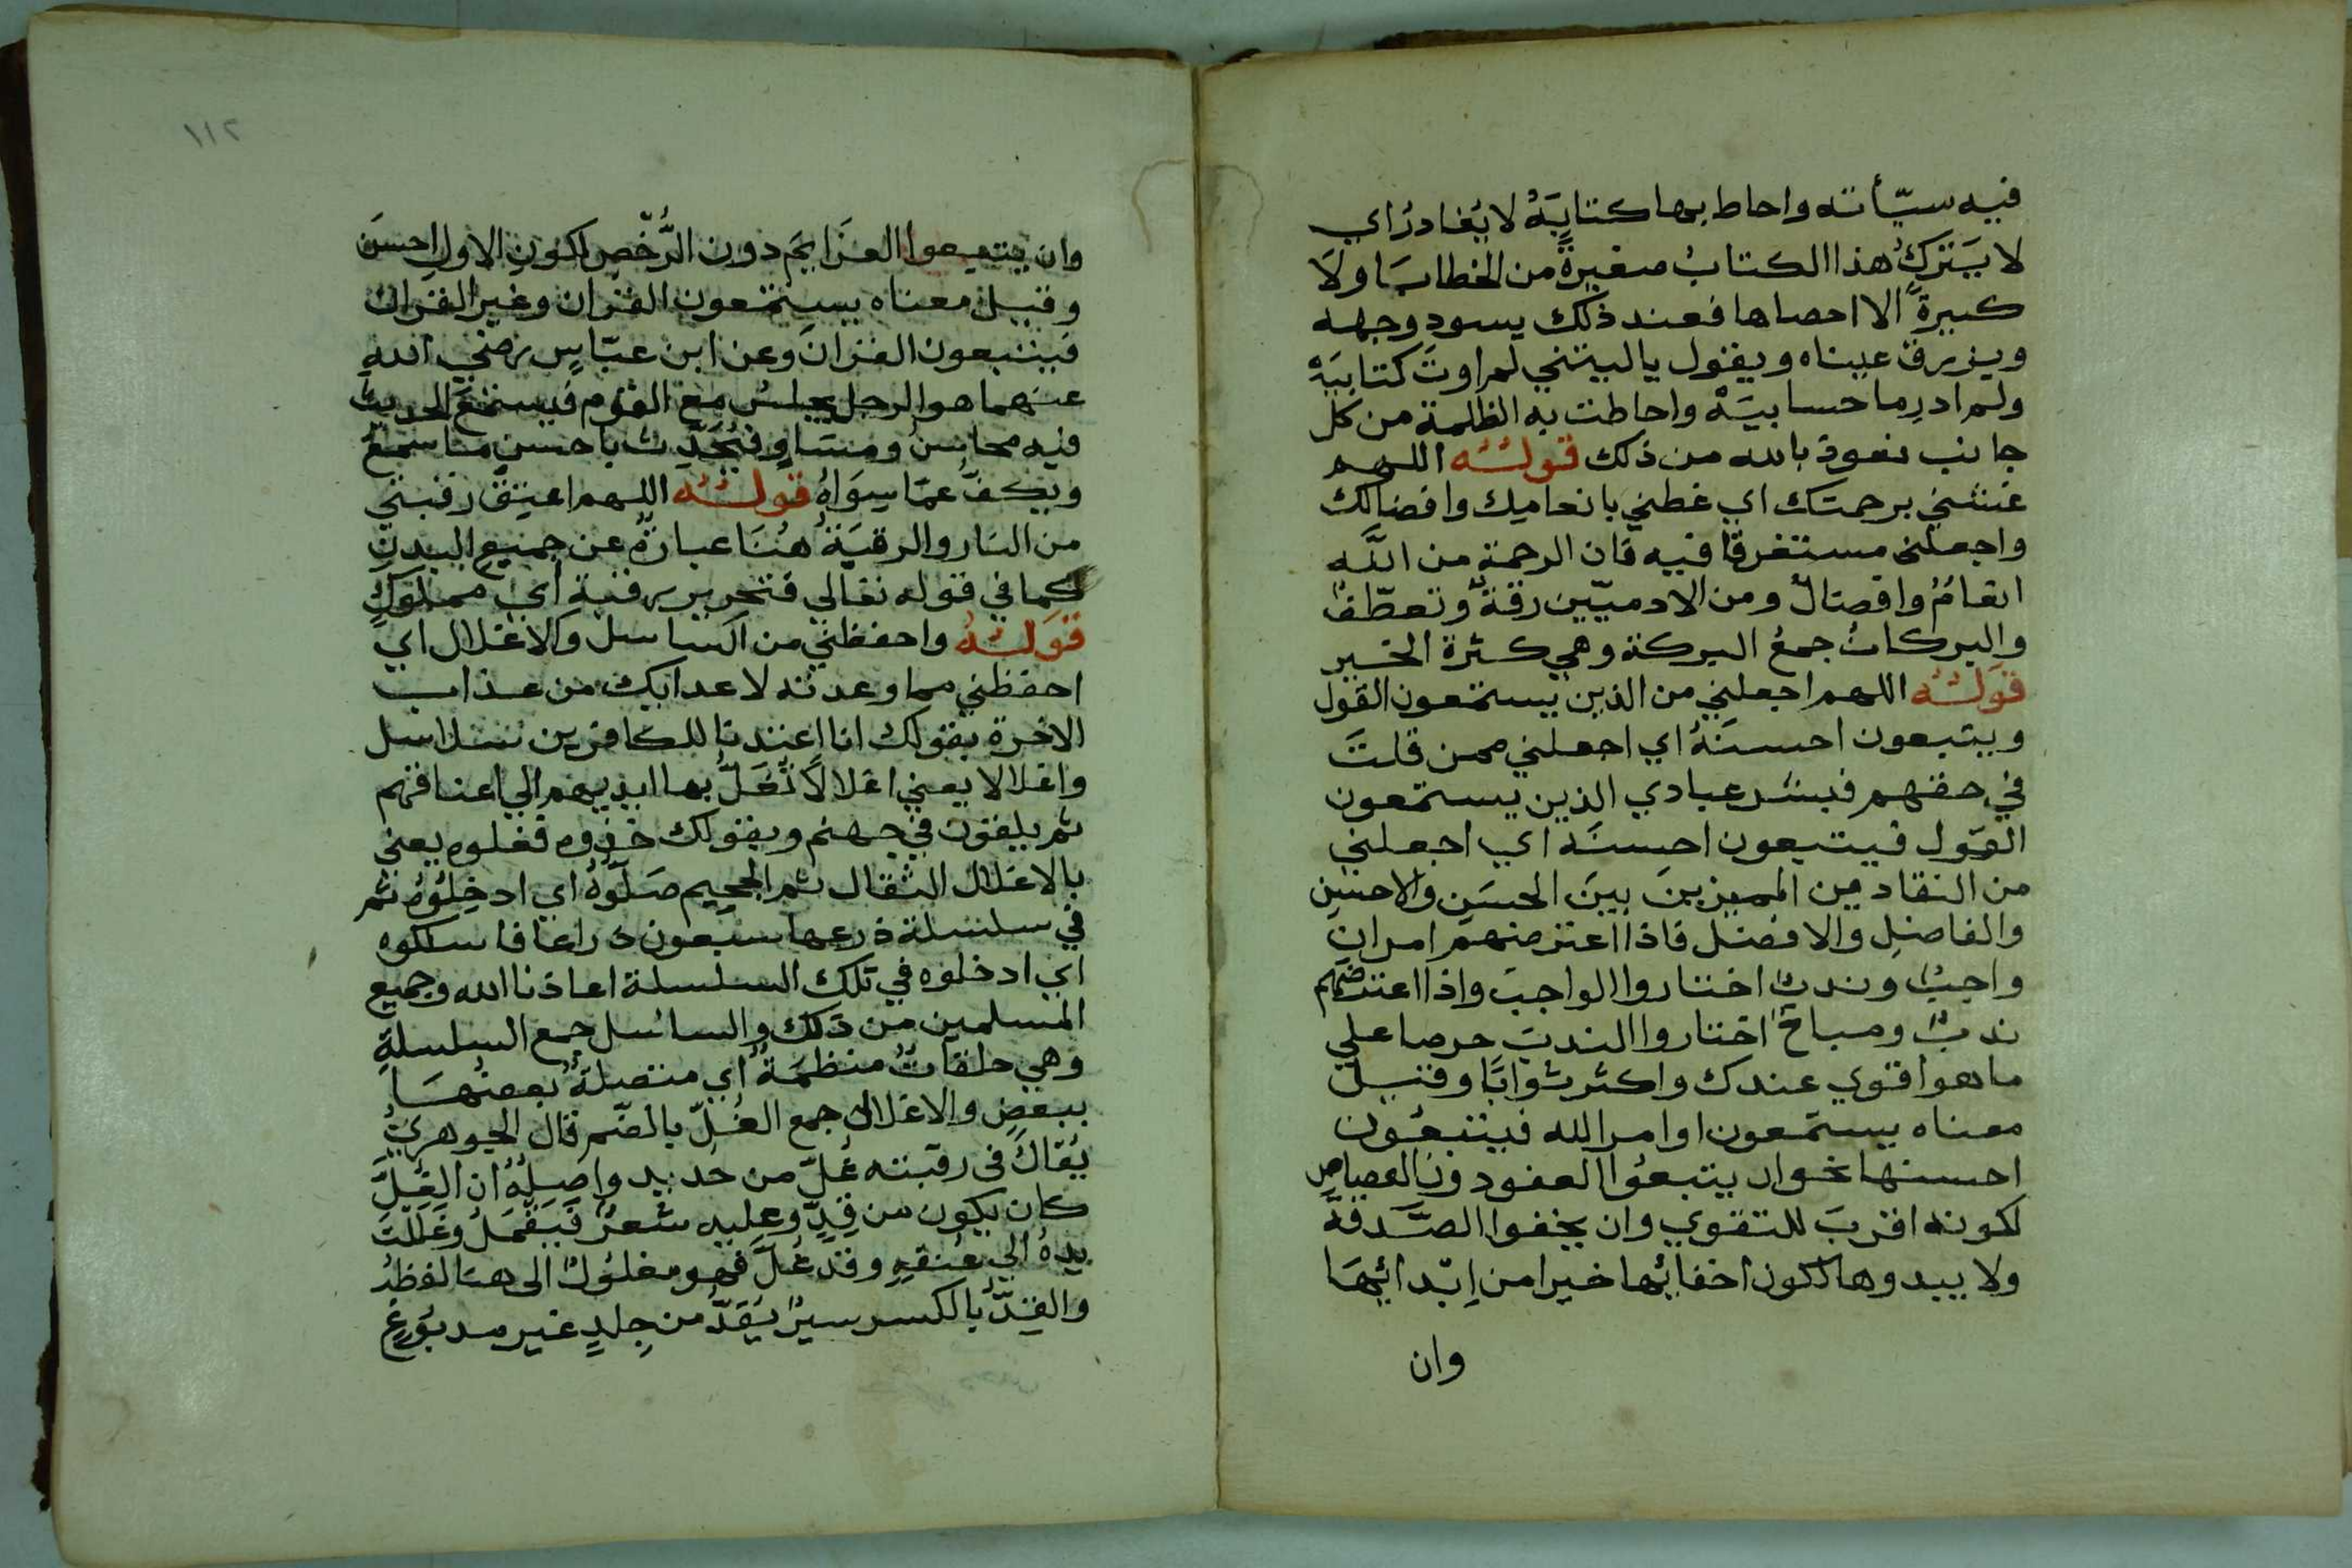 فيه سيّأته واحاط بها كتابِيَهْ لا يُغادرُ اي
لا يَتركُ هذا الكتابُ صغيرةً من الخطايا ولا
كبيرةً الا احصاها فعند ذلك يسود وجهه
ويزرق عيناه ويقول يا ليتني لم اوتَ كتابيَهْ
ولم ادرِ ما حسابيَهْ واحاطت به الظلمة من كل
جانب نعوذ بالله من ذلك قولُـــه اللهم
غشني برحمتك اي غطني بانعامك وافضالك
واجعلني مستغرقا فيه فان الرحمة من اللّٰه
انعامٌ وافضالٌ ومن الادميّين رقةٌ وتعطّفٌ
والبركاتُ جمعُ البركة وهي كثرة الخير
قولُـــه اللهم اجعلني من الذين يستمعون القول
ويتبعون احسنَهُ اي اجعلني ممن قلتَ
في حقهم فبشر عبادي الذين يستمعون
القول فيتبعون احسنَه اي اجعلني
من النقاد من المميزين بين الحسَنِ والاحسَنِ
والفاضلِ والافضل فاذا اعترضهم امرانِ
واجبٌ وندبٌ اختاروا الواجبَ واذا اعترضهم
ندبٌ ومباحٌ اختاروا الندبَ حرصا علي
ما هو اقوي عندك واكثر ثوابًا وقيل
معناه يستمعون اوامر الله فيتبعُون
احسنها نحو ان يتبعُوا العفو دون القصاصِ
لكونه اقربَ للتقوي وان يخفوا الصَّدقة
ولا يبدوها لكون اخفائها خيرا من اِبْدائهَا
وان
١١٢
وان يتبعوا العزَايمَ دون الرُّخَصِ لكونِ الاولِ احسنَ
وقيل معناه يستمعون القران وغير القران
فيتبعون القرانَ وعن ابن عبّاسٍ رضي الله
عنهما هو الرجل يجلسُ مع القومِ فيستمعُ الحديثَ
فيه محاسنُ ومسَاوٍ فيُحَدِّث باحسنِ ما سَمعَ
ويكفُّ عمّا سِوَاهُ قولُـــه اللهم اعتِقْ رقبتي
من النار والرقبَةُ هُنَا عبارةٌ عن جميعِ البدنِ
كما في قوله تعالي فتحرير رقبة اي مملوكٍ
قوَلُـــهُ واحفظني من السلاسل والاغلال اي
احفظني مما وعدته لاعدايك من عذاب
الاخرة بقولك انا اعتدنا للكافرين سلاسل
واغلالا يعني اغلالًا تُغَلُّ بها ايديهم الي اعناقهم
ثم يلقون في جهنم وبقولك خذوه فغلوه يعني
بالاغلال الثقال ثم الجحيم صَلّوهُ اي ادخِلُوهُ ثم
في سلسلة ذرعها سبعون ذراعا فاسلكوه
اي ادخلوه في تلك السلسلة اعاذنا الله وجميع
المسلمين من ذلك والسلاسل جمع السلسلةِ
وهي حلقاتٌ منتظمَةٌ اي متصلةٌ بعضُهَا
ببعضٍ والاغلال جمع الغُلّ بالضّم قال الجوهريُّ
يُقالُ في رقبته غُلٌّ من حديد واصلُهُ ان الغُلَّ
كان يكون من قِدٍّ وعليه شعرٌ فيَقْمَلُ وغَللْتُ
يدهُ الي عنقهِ وقد غُلَّ فهو مغلُولٌ الى هنا لفظهُ
والقِدُّ بالكسر سيرٌ يُقَدُّ من جِلدٍ غير مدبُوغٍ